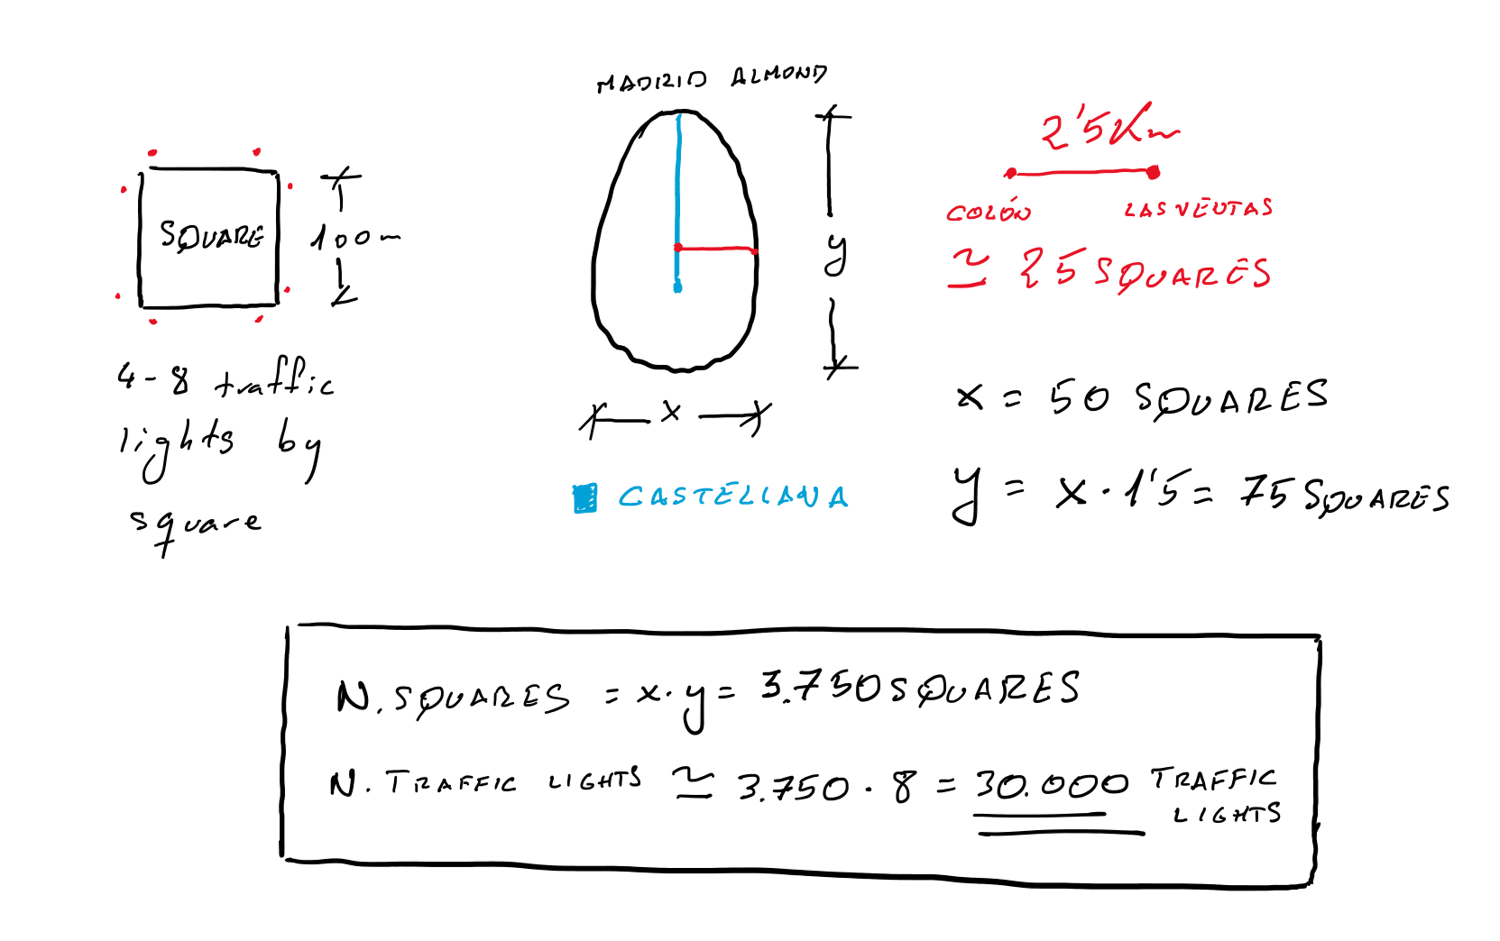 MADRID ALMOND
SQUARE
100m
4-8 traffic
lights by
square
y
x
CASTELLANA
2'5Km
COLÓN LAS VENTAS
≃ 25 SQUARES
x = 50 SQUARES
y = x · 1'5 = 75 SQUARES
N. SQUARES = x · y = 3.750 SQUARES
N. TRAFFIC LIGHTS ≃ 3.750 · 8 = 30.000 TRAFFIC
LIGHTS